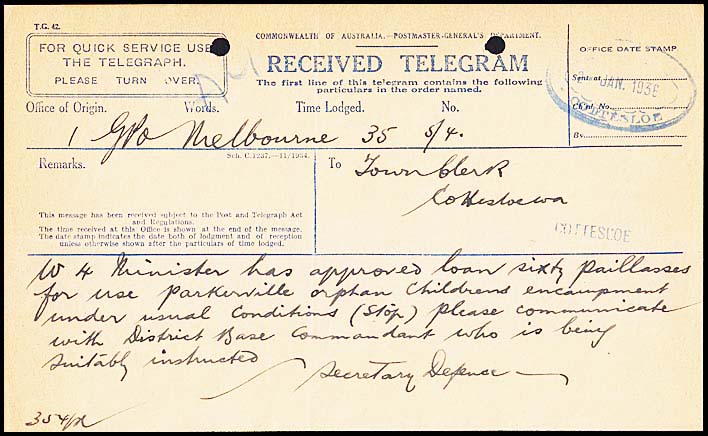 T.G. 42.
COMMONWEALTH OF AUSTRALIA.—POSTMASTER-GENERAL'S DEPARTMENT.
FOR QUICK SERVICE USE
THE TELEGRAPH.
PLEASE TURN OVER.
RECEIVED TELEGRAM
The first line of this telegram contains the following
particulars in the order named.
OFFICE DATE STAMP
Sent at
JAN. 1936
COTTESLOE
By
Office of Origin. Words. Time Lodged. No.
1 GPO Melbourne 35 5/4.
Sch. C.1237.—11/1934.
Remarks.
To Town Clerk
Cottesloewa
COTTESLOE
This message has been received subject to the Post and Telegraph Act
and Regulations.
The time received at this Office is shown at the end of the message.
The date stamp indicates the date both of lodgment and of reception
unless otherwise shown after the particulars of time lodged.
W 4 Minister has approved loan sixty paillasses
for use Parkerville orphan childrens encampment
under usual conditions (stop) please communicate
with District Base Commandant who is being
suitably instructed
Secretary Defence